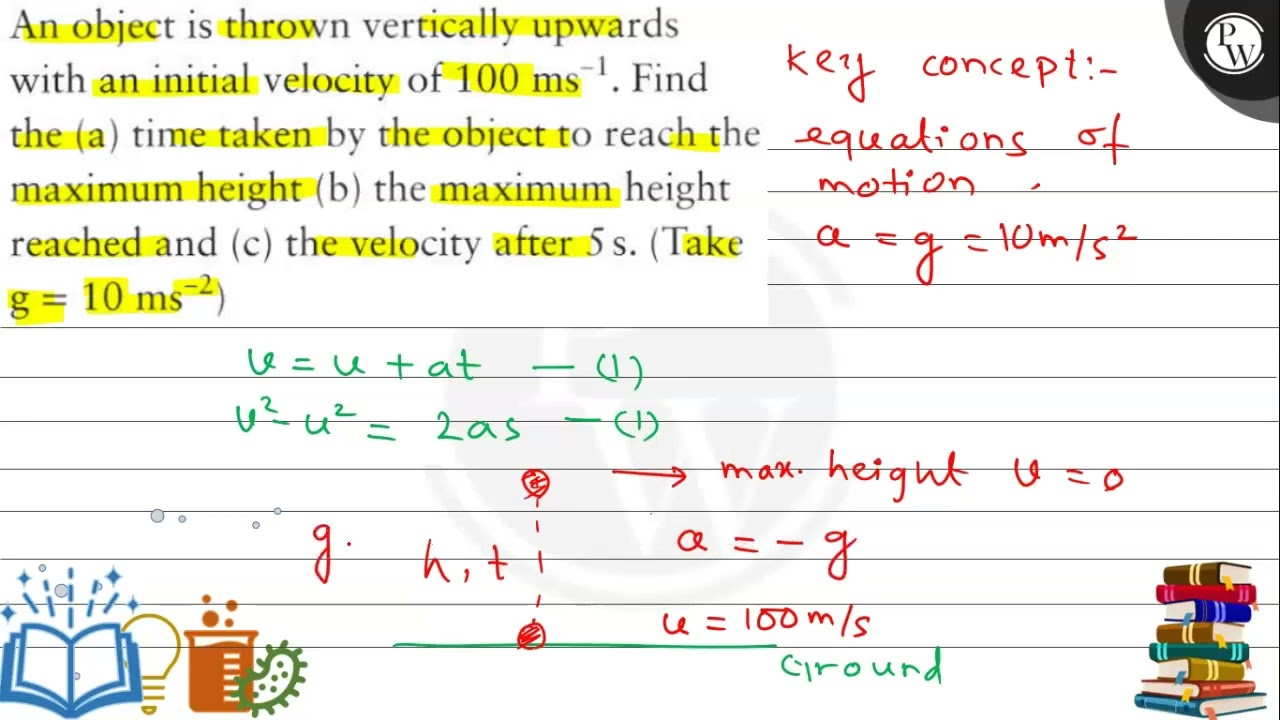 An object is thrown vertically upwards
with an initial velocity of 100 ms⁻¹. Find
the (a) time taken by the object to reach the
maximum height (b) the maximum height
reached and (c) the velocity after 5 s. (Take
g = 10 ms⁻²)
PW
Key concept:-
equations of
motion .
a = g = 10m/s²
v = u + at — (1)
v² - u² = 2as — (1)
→ max. height v = 0
g.
h, t
a = - g
u = 100m/s
Ground